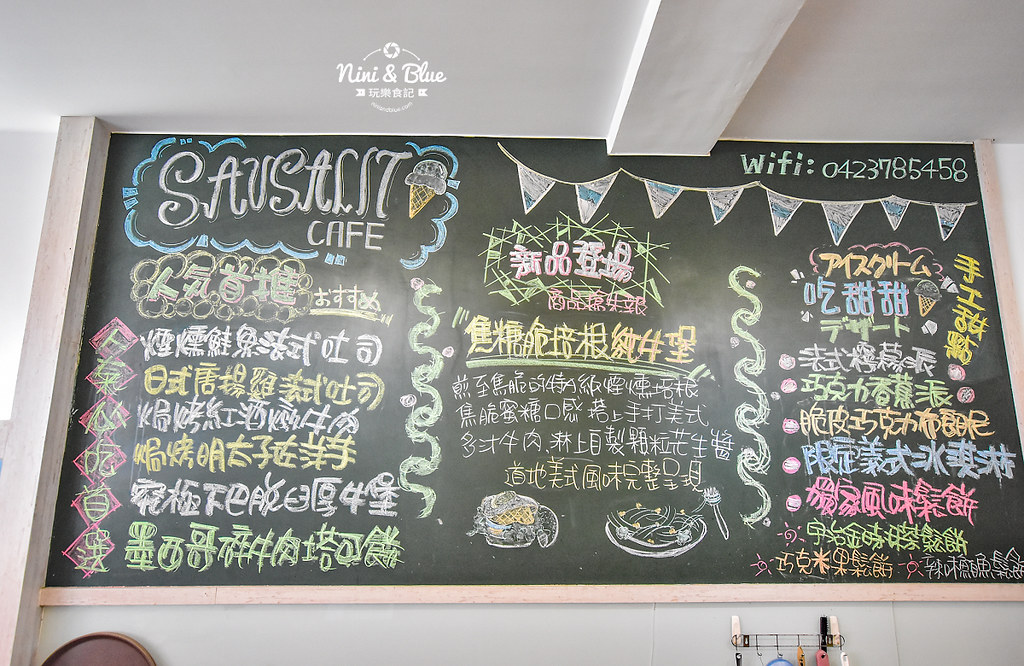 Nini & Blue
玩樂食記
niniandblue.com
SAUSALIT
CAFE
人気首推
おすすめ
人氣必吃首選
煙燻鮭魚法式吐司
日式唐揚雞法式吐司
焗烤紅酒燉牛肉
焗烤明太子佐洋芋
究極下巴脫臼厚牛堡
墨西哥碎牛肉塔可餅
新品登場
商品搶先報
"焦糖脆培根純牛堡"
煎至焦脆的特A級煙燻培根
焦脆蜜糖口感 搭上手打美式
多汁牛肉.淋上自製顆粒花生醬
道地美式風味完整呈現
Wifi: 0423785458
アイスクリーム
吃甜甜
デザート
手工甜點
法式檸檬派
巧克力香蕉派
脆皮巧克力布朗尼
限定義式冰淇淋
獨家風味鬆餅
宇治金時抹茶鬆餅
巧克米果鬆餅